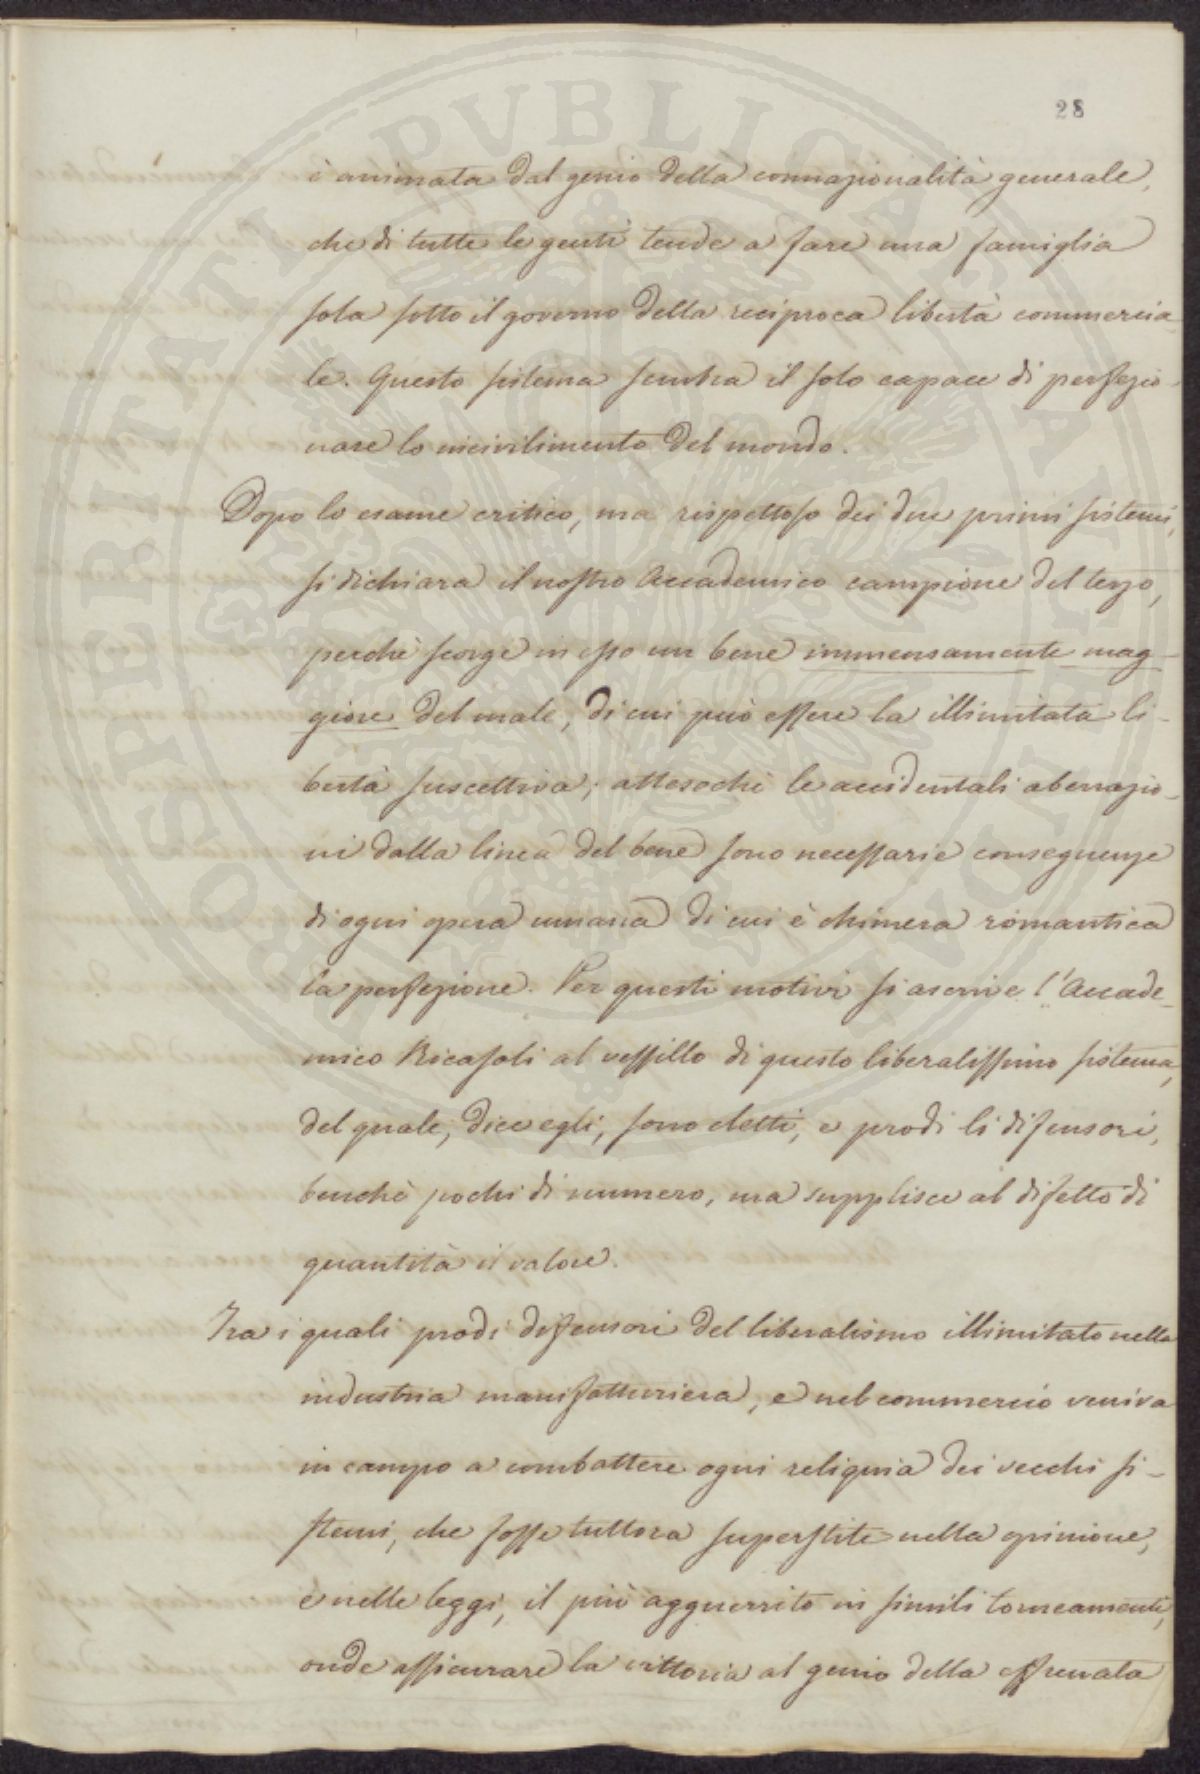 28
è animata dal genio della connazionalità generale,
che di tutte le genti tende a fare una famiglia
sola sotto il governo della reciproca libertà commercia-
le. Questo sistema sembra il solo capace di perfezio-
nare lo incivilimento del mondo.
Dopo lo esame critico, ma rispettoso dei due primi sistemi,
si dichiara il nostro Accademico campione del terzo,
perchè scorge in esso un bene immensamente mag-
giore del male, di cui può essere la illimitata li-
bertà suscettiva; attesochè le accidentali aberrazio-
ni dalla linea del bene sono necessarie conseguenze
di ogni opera umana di cui è chimera romantica
la perfezione. Per questi motivi si ascrive l'Accade-
mico Ricasoli al vessillo di questo liberalissimo sistema,
del quale, dice egli, sono eletti, e prodi li difensori,
benchè pochi di numero, ma supplisce al difetto di
quantità il valore.
Tra i quali prodi difensori del liberalismo illimitato nella
industria manifatturiera, e nel commercio veniva
in campo a combattere ogni reliquia dei vecchi si-
stemi, che fosse tuttora superstite nella opinione,
e nelle leggi, il più agguerrito in simili torneamenti,
onde assicurare la vittoria al genio della effrenata
PROSPERITATI PVBLICAE AVGENDAE